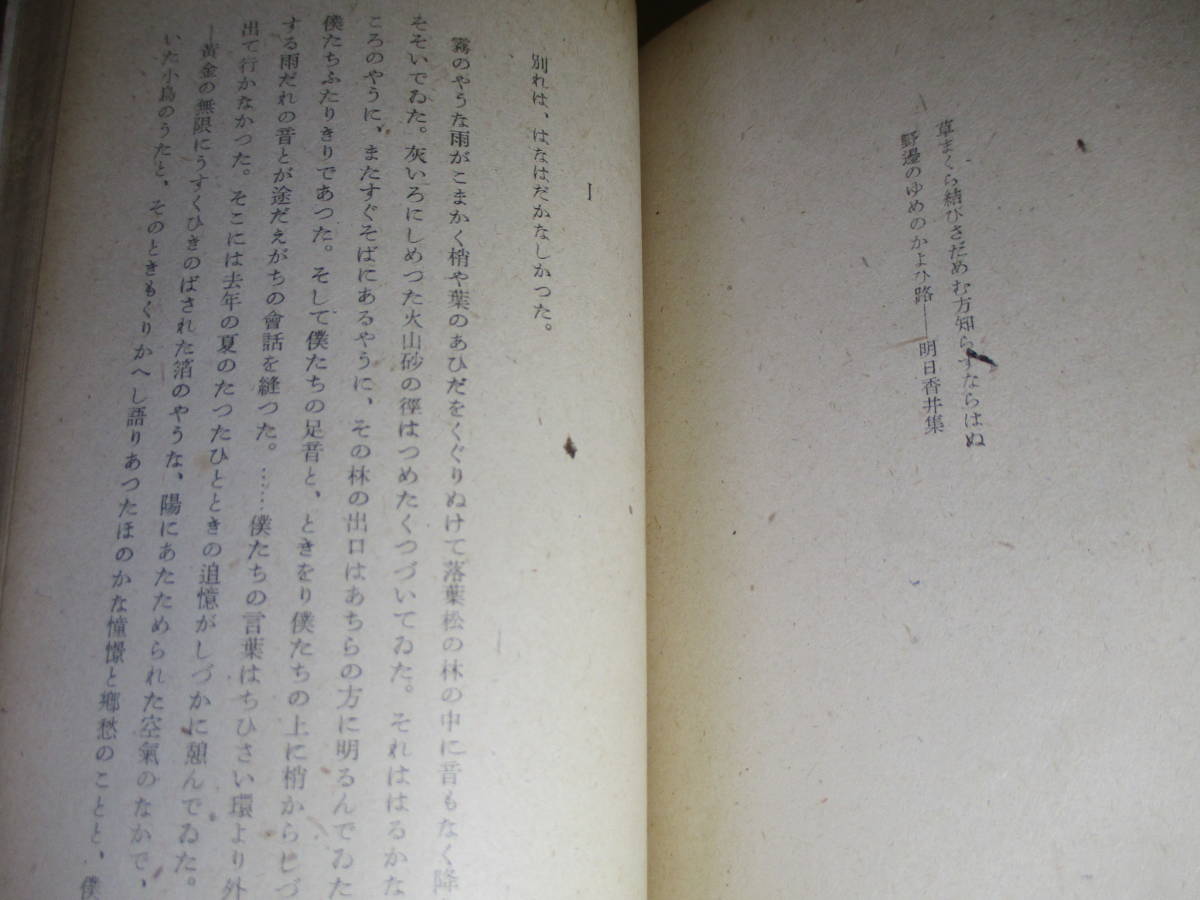 草まくら結びさだめむ方知らずならはぬ
野邊のゆめのかよひ路——明日香井集
別れは、はなはだかなしかつた。
I
霧のやうな雨がこまかく梢や葉のあひだをくぐりぬけて落葉松の林の中に音もなく降
そそいでゐた。灰いろにしめつた火山砂の徑はつめたくつづいてゐた。それははるかな
ころのやうに、またすぐそばにあるやうに、その林の出口はあちらの方に明るんでゐた
僕たちふたりきりであつた。そして僕たちの足音と、ときをり僕たちの上に梢からしづ
する雨だれの音とが途だえがちの會話を縫つた。……僕たちの言葉はちひさい環より外
出て行かなかつた。そこには去年の夏のたつたひとときの追憶がしづかに憩んでゐた。
—黄金の無限にうすくひきのばされた箔のやうな、陽にあたためられた空氣のなかで、
いた小鳥のうたと、そのときもくりかへし語りあつたほのかな憧憬と郷愁のことと、僕